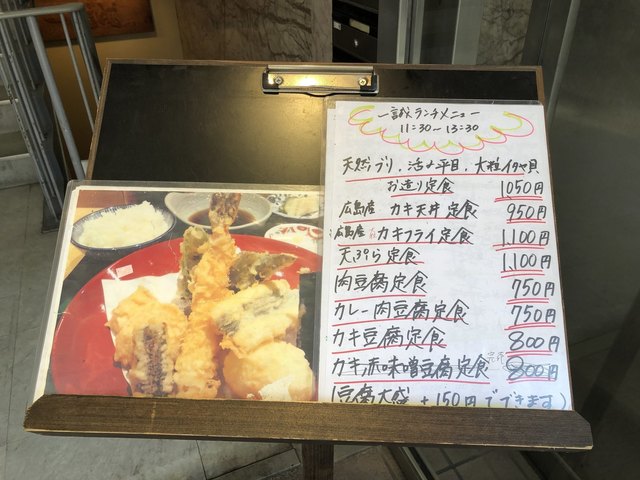 一誠ランチメニュー
11:30~13:30
天然ブリ、活〆平目、大粒イタヤ貝
お造り定食 1050円
広島産 カキ天丼定食 950円
広島産 カキフライ定食 1,100円
天ぷら定食 1,100円
肉豆腐定食 750円
カレー肉豆腐定食 750円
カキ豆腐定食 800円
カキ赤味噌豆腐定食 800円
(豆腐大盛 +150円でできます)